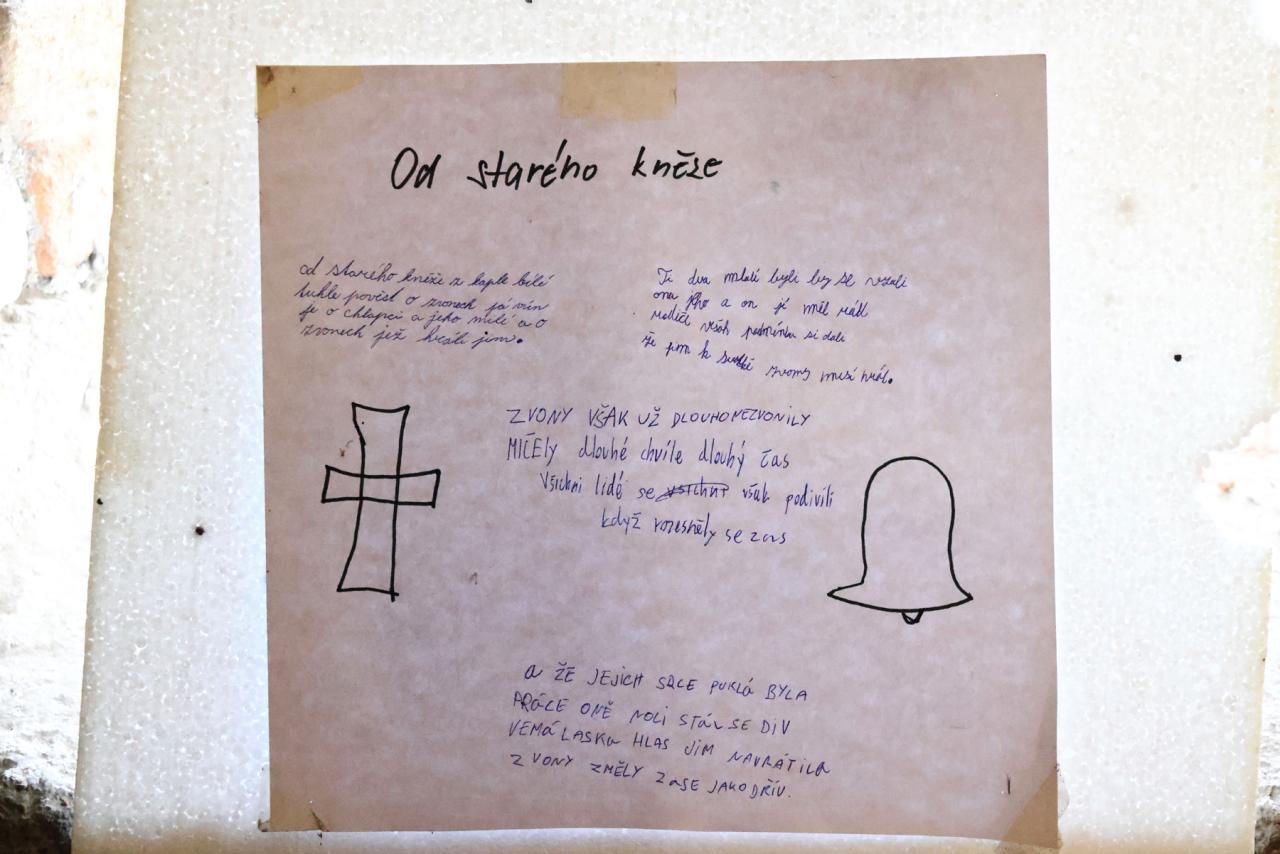 Od starého kněze
od starého kněze z kaple bílé
tuhle pověst o zvonech já vím
je o chlapci a jeho milé a o
zvonech jež hráli jim.
Ti dva mladí byli by se vzali
ona jeho a on jí měl rád
rodiče však podmínku si dali
že jim k svatbě zvony musí hrát.
ZVONY VŠAK UŽ DLOUHO NEZVONILY
MlČEly dlouhé chvíle dlouhý čas
Všichni lidé se však podivili
když rozezněly se zas
a ŽE JEJICH SRCE PUKLÁ BYLA
PRÁCE ONĚ NOCI STÁL SE DIV
VEMÁ LÁSKA HLAS JIM NAVRÁTILA
ZVONY ZMĚLY ZASE JAKO DŘÍV.